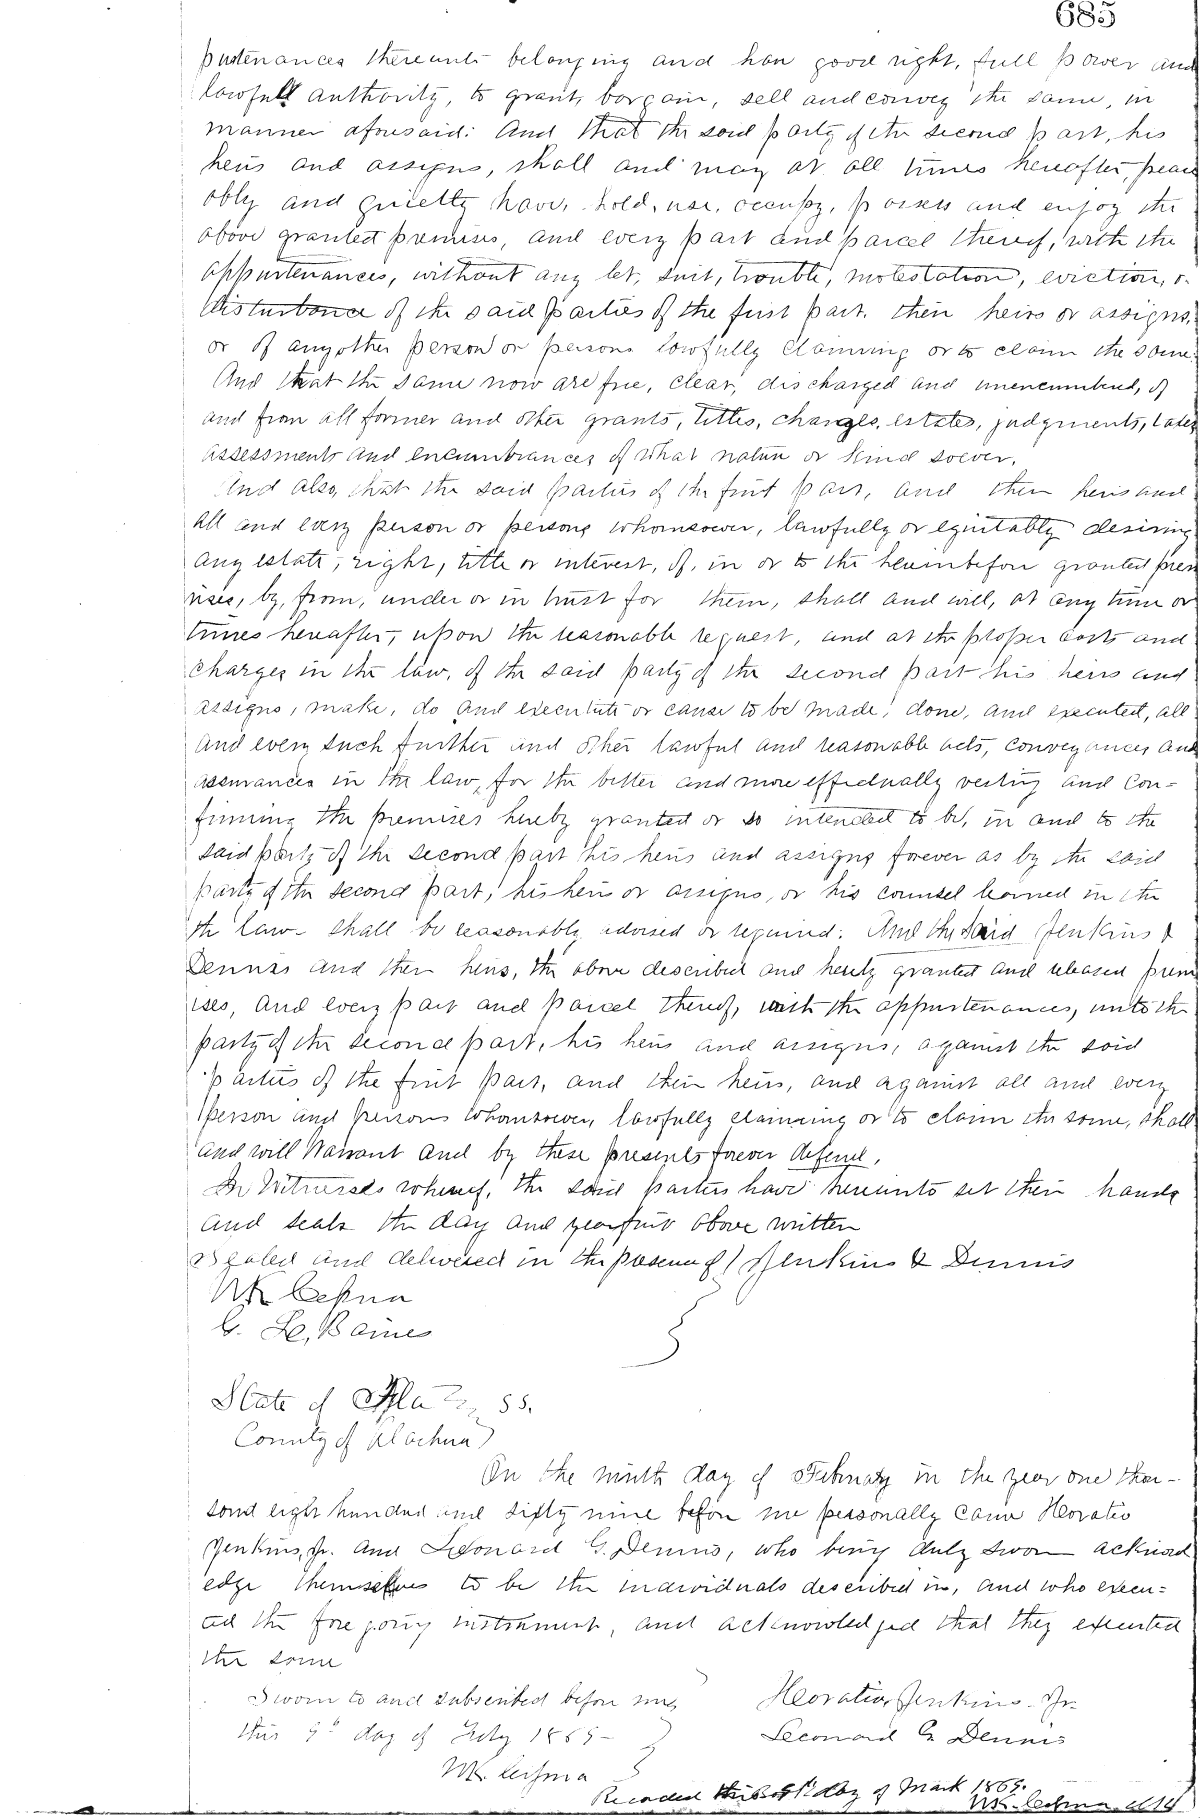 685
purtenances thereunto belonging and has good right, full power and
lawfull authority, to grant, bargain, sell and convey the same, in
manner aforesaid: And that the said party of the second part, his
heirs and assigns, shall and may at all times hereafter, peace
ably and quietly have, hold, use, occupy, possess and enjoy the
above granted premises, and every part and parcel thereof, with the
appurtenances, without any let, suit, trouble, molestation, eviction, or
disturbance of the said parties of the first part, their heirs or assigns,
or of any other person or persons lawfully claiming or to claim the same.
And that the same now are free, clear, discharged and unencumbered, of
and from all former and other grants, titles, charges, estates, judgments, taxes
assessments and encumbrances of what nature or kind soever.
And also, that the said parties of the first part, and their heirs and
all and every person or persons whomsoever, lawfully or equitably desiring
any estate, right, title or interest, of, in or to the hereinbefore granted prem
ises, by, from, under or in trust for them, shall and will, at any time or
times hereafter, upon the reasonable request, and at the proper costs and
charges in the law, of the said party of the second part his heirs and
assigns, make, do and execute or cause to be made, done, and executed, all
and every such further and other lawful and reasonable acts, conveyances and
assurances in the law, for the better and more effectually vesting and con-
firming the premises hereby granted or so intended to be, in and to the
said party of the second part his heirs and assigns forever as by the said
party of the second part, his heirs or assigns, or his counsel learned in the
the law shall be reasonably advised or required. And the said Jenkins &
Dennis and their heirs, the above described and hereby granted and released prem
ises, and every part and parcel thereof, with the appurtenances, unto the
party of the second part, his heirs and assigns, against the said
parties of the first part, and their heirs, and against all and every
person and persons whomsoever, lawfully claiming or to claim the same, shall
and will Warrant and by these presents forever defend.
In Witness whereof, the said parties have hereunto set their hands
and seals the day and year first above written
Sealed and delivered in the presence of } Jenkins & Dennis
WK Cessna
L. Baines
State of Fla } ss.
County of Alachua }
On the ninth day of February in the year one thou-
sand eight hundred and sixty nine before me personally came Horatio
Jenkins, Jr. and Leonard G. Dennis, who being duly sworn acknowl
edge themselves to be the individuals described in, and who execu-
ed the foregoing instrument, and acknowledged that they executed
the same
Sworn to and subscribed before me,
Horatio Jenkins Jr.
this 9th day of Feby 1869-
Leonard G. Dennis
WK. Cessna
Recorded this day of March 1869.
WK. Cessna